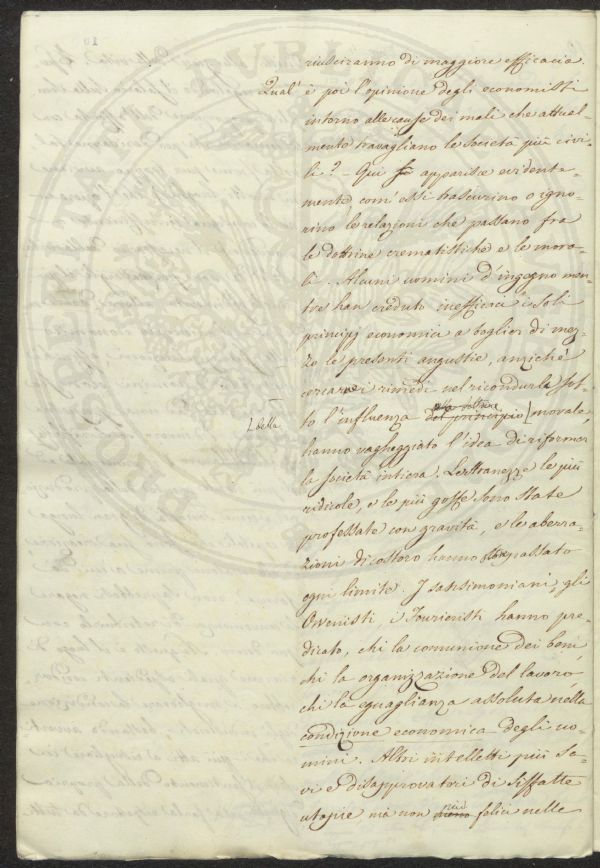 riusciranno di maggiore efficacia.
Qual'è poi l'opinione degli economisti
intorno alle cause dei mali che attuel-
mente travagliano le società più civi-
li? - Qui appariscе evidenta-
mente com'essi trascurino o igno-
rino le relazioni che passano fra
le dottrine crematistiche e le mora-
li. Alcuni uomini d'ingegno men-
tre han creduto inefficaci i soli
principj economici a toglier di mez-
zo le presenti angustie, anziché
cercarvei rimedi nel ricondurle sot-
to l'influenza del principio morale,
della
hanno vagheggiato l'idea di riformar
la società intiera. Le stranezze le più
ridicole, e le più goffe sono state
professate con gravità, e le aberra-
zioni di costoro hanno passato
ogni limite. I sansimoniani, gli
Owenisti, i Fourieristi hanno pre-
dicato, chi la comunione dei beni,
chi la organizzazione del lavoro
chi la eguaglianza assoluta nella
condizione economica degli uo-
mini. Altri intelletti più sa-
vi e disapprovatori di siffatte
utopie ma non meno più felici nelle